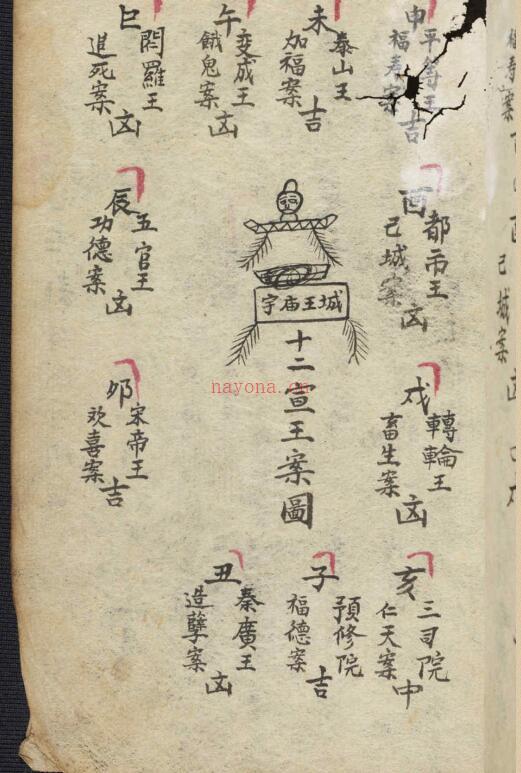 申
平等王
福寿案
吉
未
泰山王
加福案
吉
午
变成王
餓鬼案
凶
巳
閻羅王
追死案
凶
酉
都市王
己城案
凶
城王庙宇
十二宣王案圖
辰
五官王
功德案
凶
戌
轉輪王
畜生案
凶
卯
宋帝王
欢喜案
吉
亥
三司院
仁天案
中
子
預修院
福德案
吉
丑
秦廣王
造孽案
凶
己城案
nayona.cn